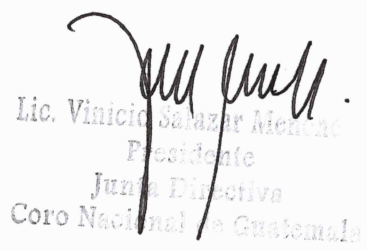 Lic. Vinicio Salazar
Presidente
Junta Directiva
Coro Nacional de Guatemala